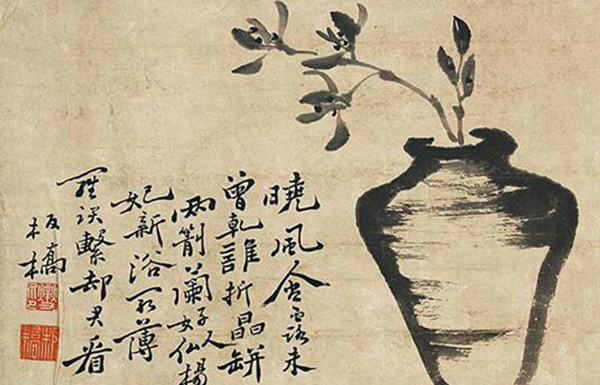 曉風含露未
曾乾誰折晶缾
兩箭蘭好似楊
妃新浴罷薄
羅誤繫却君看
板橋